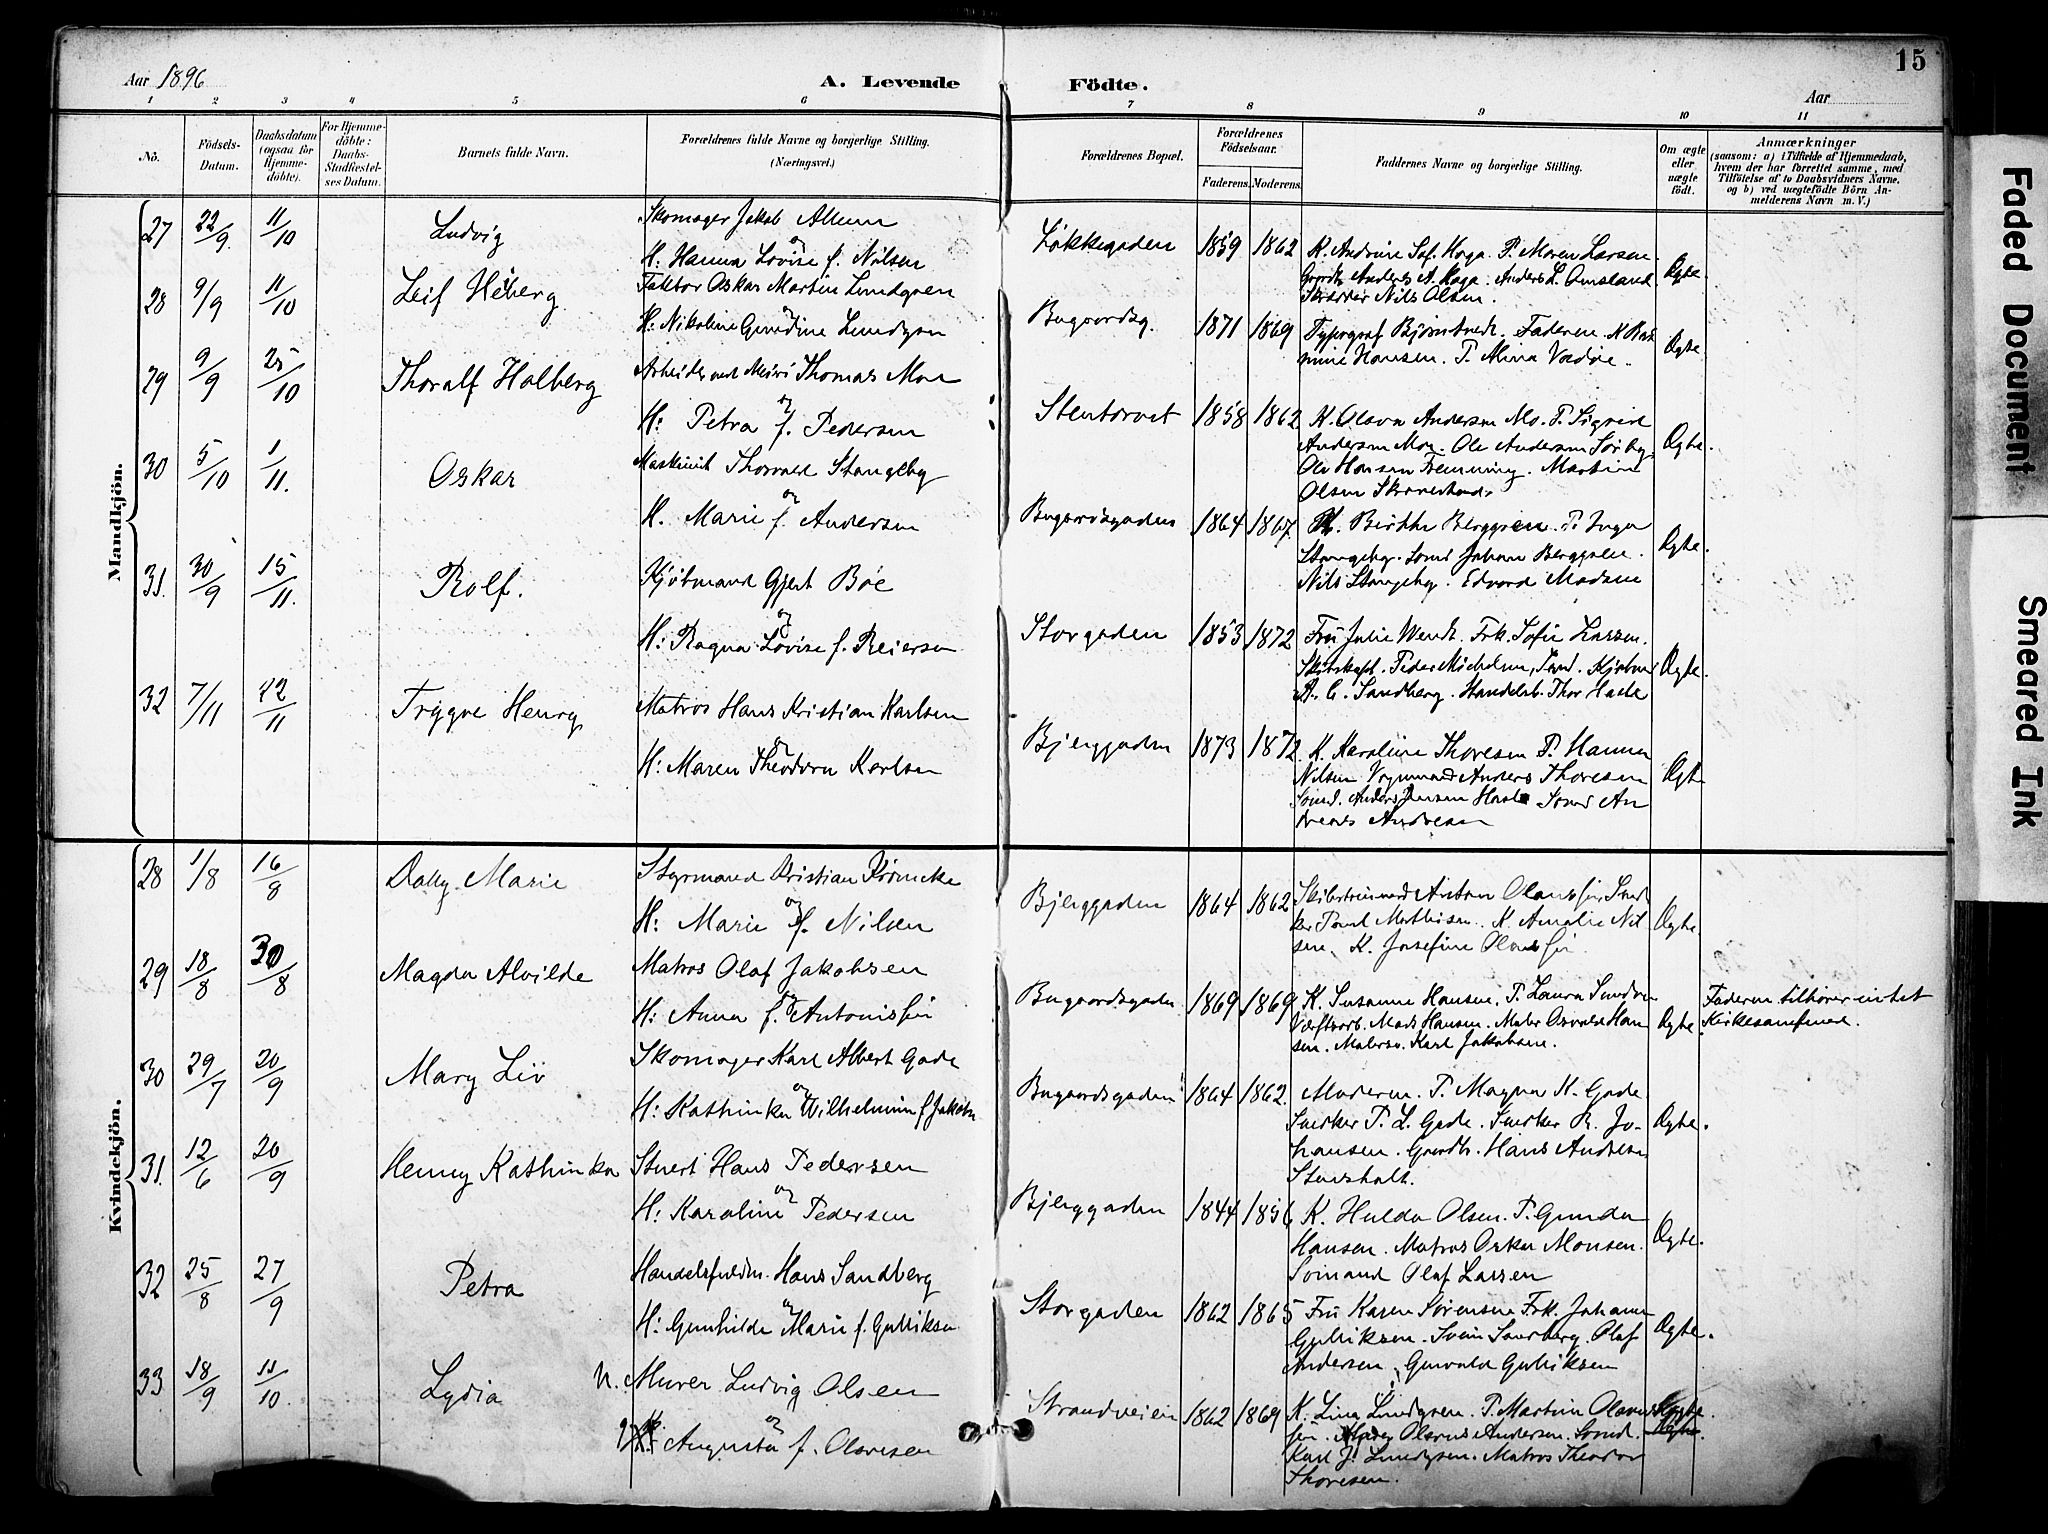 Aar 1896
A. Levende Födte.
15
Aar
1 2 3 4 5 6 7 8 9 10 11
No.
Födsels-Datum.
Daabsdatum (ogsaa for Hjemme-döbte).
For Hjemme-döbte: Daabs-Stadfæstel-ses Datum.
Barnets fulde Navn.
Forældrenes fulde Navne og borgerlige Stilling. (Næringsvei.)
Forældrenes Bopæl.
Forældrenes Födselsaar.
Faderens. Moderens.
Faddernes Navne og borgerlige Stilling.
Om ægte eller uægte födt.
Anmærkninger
(saasom: a) i Tilfælde af Hjemmedaab, hvem der har forrettet samme, med Tilföielse af to Daabsvidners Navne, og b) ved uægtefödte Börn An-melderens Navn m. V.)
Mandkjön.
27 22/9. 11/10 Ludvig
Skomager Jakob Allum
og
H: Hanna Lovise f. Nilsen
Løkkegaden 1859 1862
K. Andrine Sof. Haga. P. Maren Larsen
Anders A. Haga. Anders L. Omsland
Skrædder Nils Olsen.
Ægte
28 9/9 11/10 Leif Heiberg
Faktor Oskar Martin Lundgren
og
H: Nikoline Gundine Lundgren
Bugaardsg. 1871 1869
Typograf Bjørntvedt. Faderen K Ras
mine Hansen. P. Alma Vadøe.
Ægte.
29 9/9 25/10 Thoralf Holberg
Arbeider ved Meieri Thomas Moe
og
H: Petra f. Pedersen
Stentorvet 1858 1862
K. Olava Andersen Mo. P. Sigrid
Andersen Moe. Ole Andersen Sørby.
Ole Hansen Fremming. Martin
Olsen
Ægte.
30 5/10 1/11. Oskar
Maskinist Thorvald Stangeby
og
H. Marie f. Andersen
Bugaardsgaden 1864 1867.
K. Berthe Berggren. P. Inga
Stangeby. Sømd Johan Berggren.
Nils Stangeby. Edvard Madsen
Ægte.
31. 30/9 15/11. Rolf.
Kjøbmand Gjert Bøe
og
H: Ragna Lovise f. Reiersen
Storgaden 1853 1872
Fru Julie Wendt. Frk. Sofie Larsen.
Skibskapt. Peder Michelsen, Kjøbm
A. C. Sandberg. Handelsb. Thor Hasle
Ægte.
32 7/11 22/11 Trygve Henry
Matros Hans Kristian Karlsen
og
H: Maren Theodora Karlsen
Bjerggaden 1873 1872
K. Karoline Thoresen P. Hanna
Nilsen Vognmand Anders Thoresen
Sømd. Anders Jensen Hasle Sømd An
dreas Andresen
Ægte
Kvindekjön.
28 1/8 16/8 Dolly Marie
Styrmand Kristian Krømcke
og
H: Marie f. Nilsen
Bjerggaden 1864 1862
Skibstømmermd Anton Olaussen Snek
ker Mathisen. K. Amalie Nil
sen. K. Josefine Olaussen.
Ægte.
29 18/8 30/8 Magda Alvilde
Matros Olaf Jakobsen
og
H: Anna f. Antonissen
Bugaardsgaden 1869 1869
K. Susanne Hansen. P. Laura
Værftsarb. Mads Hansen. Maler Osvald Han
sen. Malersv. Karl Jakobsen.
Ægte.
Faderen tilhører intet
Kirkesamfund.
30 29/7 20/9 Mary Liv
Skomager Karl Albert Gade
og
H: Kathinka Wilhelmine f Jakobsen
Bugaardsgaden 1864 1862.
Moderen. P. Magna K. Gade
Snekker P. L. Gade. Snekker R. Jo-
hansen. Gaardb. Hans Andresen
Stensholt.
Ægte.
31. 12/6 20/9 Henny Kathinka
Stuert Hans Pedersen
og
H: Karoline Pedersen
Bjerggaden 1844 1856
K. Hulda Olsen. P. Gunda
Hansen. Matros Oskar Monsen.
Sømand Olaf Larsen
Ægte.
32 25/8 27/9 Petra
Handelsfuldm. Hans Sandberg
og
H: Gunhilde Marie f. Gulliksen
Storgaden 1862 1865
Fru Karen Sørensen Frk. Johanne
Gulliksen. Svein Sandberg. Olaf
Andersen, Gunvald Gulliksen
Ægte.
33 18/9 11/10 Lydia
Murer Ludvig Olsen
og
Augusta f. Olavesen
Strandveien 1862 1869
K. Lina Lundgren. P. Martin
Olavus Andersen. Sømd.
Karl J. Lundgren. Matros Theodor
Thoresen.
Faded Document
Smeared Ink